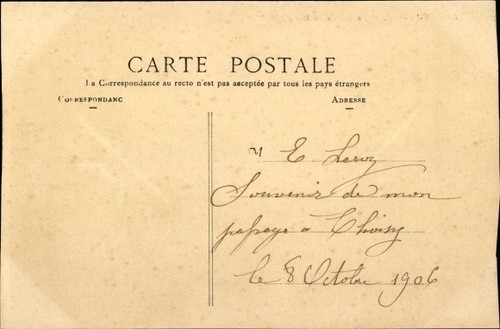 CARTE POSTALE
La Correspondance au recto n'est pas acceptée par tous les pays étrangers
CORRESPONDANC
ADRESSE
M E Leroy
Souvenir de mon
papage à Choisy
le 8 Octobre 1906